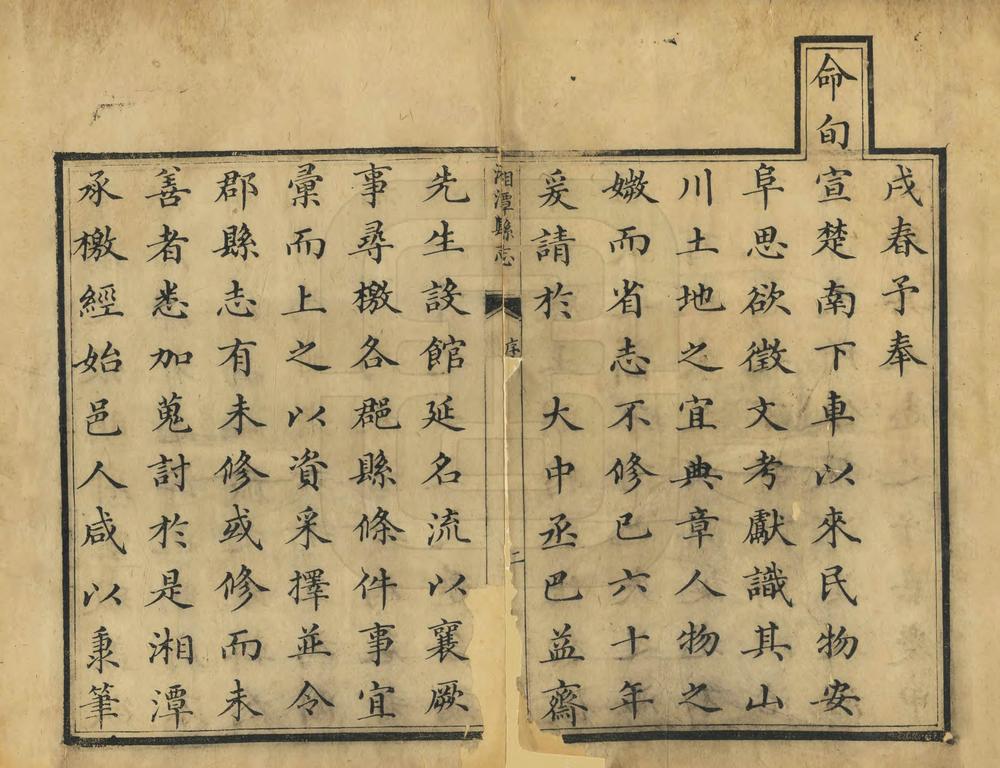 戌春予奉
命旬宣楚南下車以來民物安
阜思欲徵文考獻識其山
川土地之宜典章人物之
媺而省志不修已六十年
爰請於
大中丞巴益齋
湘潭縣志
序
二
先生設館延名流以襄厥
事尋檄各郡縣條件事宜
彚而上之以資采擇並令
郡縣志有未修或修而未
善者悉加蒐討於是湘潭
承檄經始邑人咸以秉筆